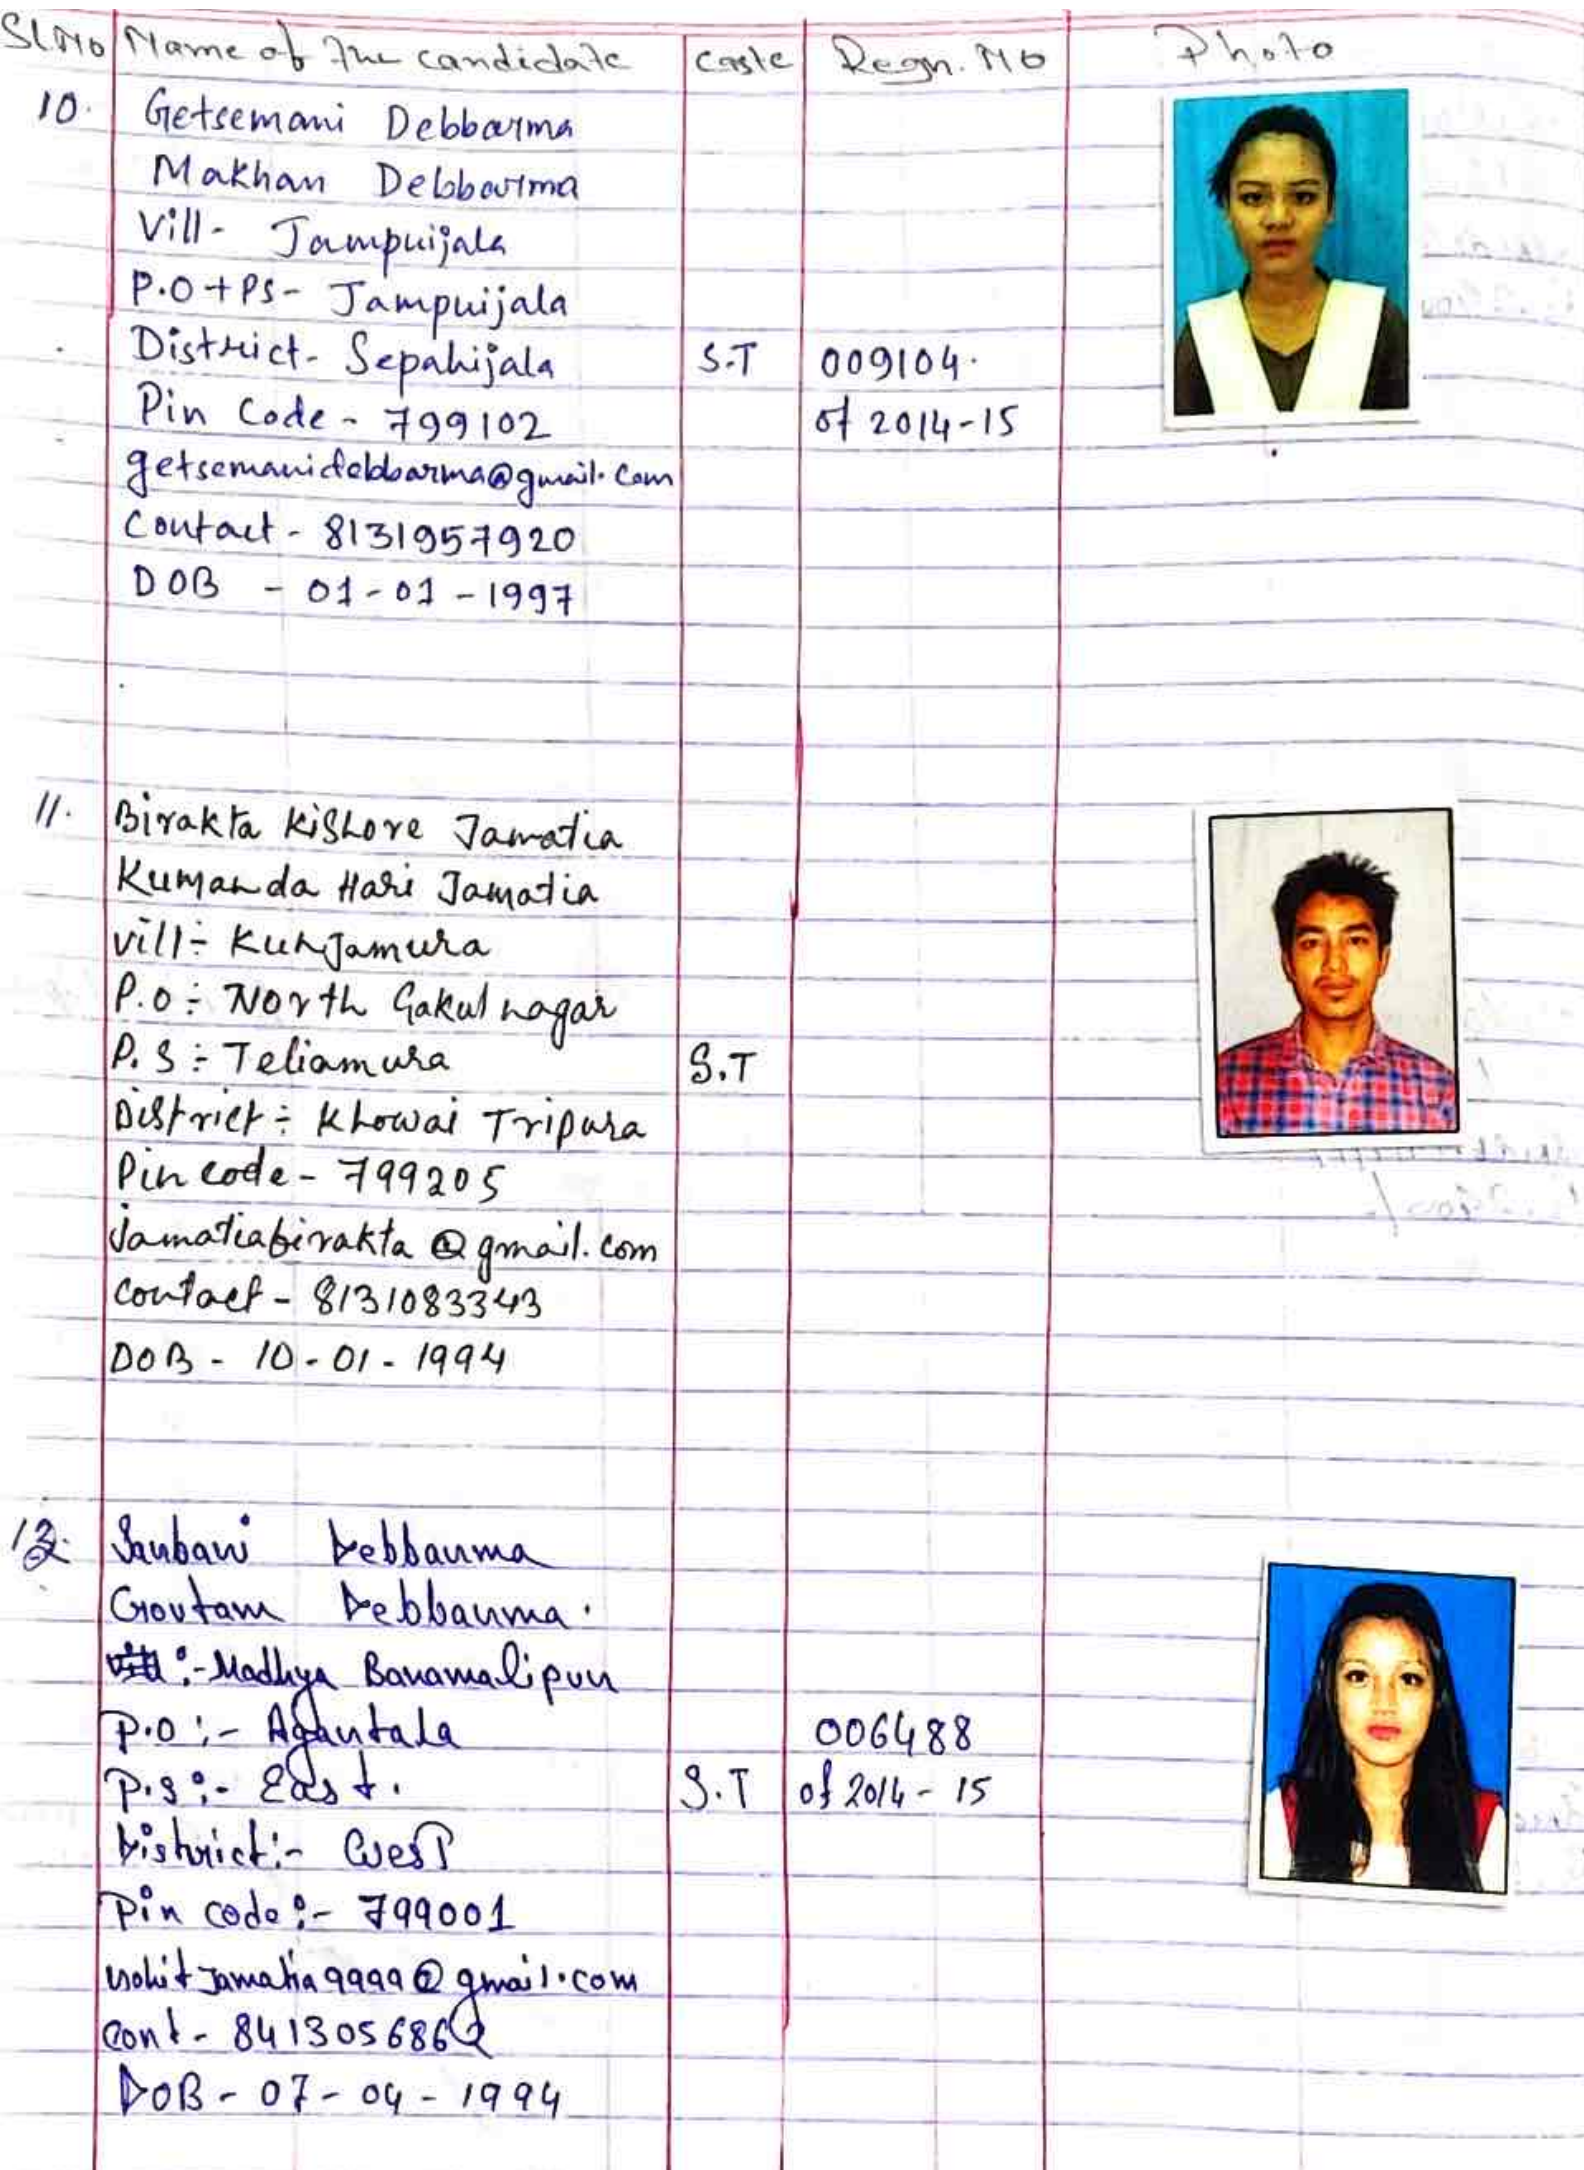 Sl.No Name of the candidate Caste Regn. No Photo
10. Getsemani Debbarma
Makhan Debbarma
Vill- Jampuijala
P.O+PS- Jampuijala
District- Sepahijala S.T 009104.
Pin Code - 799102 of 2014-15
getsemanidebbarma@gmail.com
Contact - 8131957920
DOB - 01-01-1997
11. Birakta Kishore Jamatia
Kumanda Hari Jamatia
vill÷ Kunjamura
P.O÷ North Gakulnagar
P.S÷ Teliamura S.T
District÷ Khowai Tripura
Pin code - 799205
jamatiabirakta@gmail.com
contact - 8131083343
DOB - 10-01-1994
12. Debbarma
Goutam Debbarma.
:- Madhya Banamalipur
P.O:- Agartala 006488
P.S:- East. S.T of 2014-15
District:- West
Pin code:- 799001
@gmail.com
cont- 8413056862
DOB - 07-04-1994